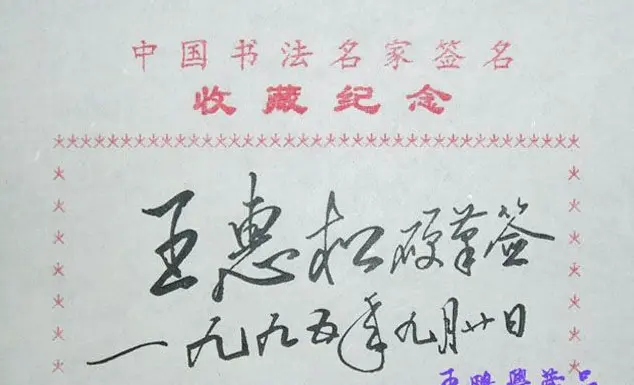 中国书法名家签名
收藏纪念
王惠松硬笔签
一九九五年九月廿日